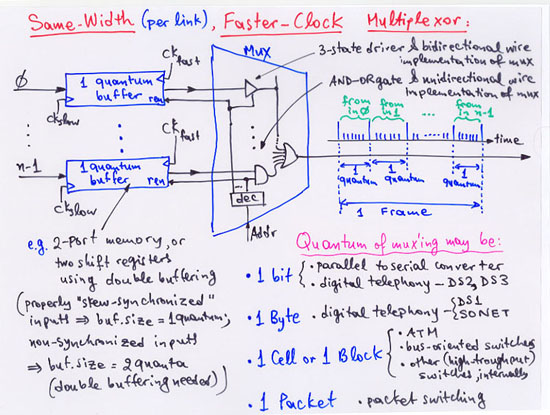 Same-Width (per link), Faster-Clock Multiplexor:
ck fast
Mux
3-state driver & bidirectional wire
implementation of mux
AND-OR gate & unidirectional wire
implementation of mux
0
1 quantum
buffer
ren
ck slow
from in 0
from in 1
...
from in n-1
time
ck fast
n-1
1 quantum
buffer
ren
ck slow
dec
Addr
1 quantum
1 quantum
1 quantum
1 Frame
e.g. 2-port memory, or
two shift registers
using double buffering
(properly "skew-synchronized"
inputs ⇒ buf.size = 1 quantum;
non-synchronized inputs
⇒ buf.size = 2 quanta
(double buffering needed))
Quantum of mux'ing may be:
• 1 bit { • parallel to serial converter
• digital telephony – DS2, DS3
• 1 Byte • digital telephony – { DS1
SONET
• 1 Cell or 1 Block { • ATM
• bus-oriented switches
• other (high-troughput)
switches internally
• 1 Packet • packet switching